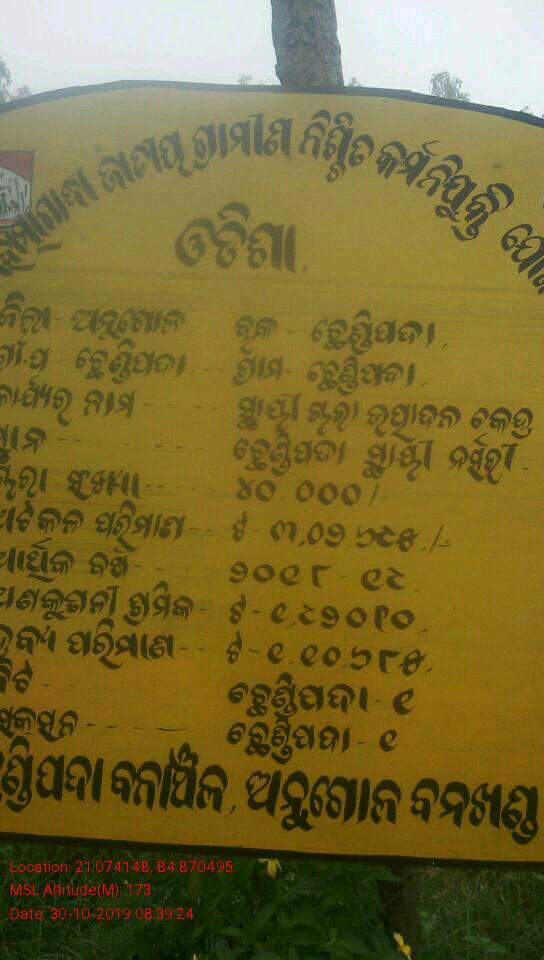 ଜାତୀୟ ଗ୍ରାମୀଣ ନିଶ୍ଚିତ କର୍ମନିଯୁକ୍ତି
ଓଡିଶା
ଜିଲ୍ଲା - ଅନୁଗୋଳ ବ୍ଲକ - ଛେଣ୍ଡିପଦା
ଗ୍ରା.ପ - ଛେଣ୍ଡିପଦା ଗ୍ରାମ - ଛେଣ୍ଡିପଦା
କାର୍ଯ୍ୟର ନାମ - - - ସ୍ଥାୟୀ ଚାରା ଉତ୍ପାଦନ କେନ୍ଦ୍ର
ସ୍ଥାନ - - - ଛେଣ୍ଡିପଦା ସ୍ଥାୟୀ ନର୍ସରୀ
ଚାରା ସଂଖ୍ୟା - - - ୪୦,୦୦୦/-
ଅଟକଳ ପରିମାଣ - - ଟ - ୩,୦୨,୬୯୫/-
ଆର୍ଥିକ ବର୍ଷ ୨୦୧୮ - ୧୯
ଅଣକୁଶଳୀ ଶ୍ରମିକ - ଟ - ୧,୯୨୦୧୦
ଦ୍ରବ୍ୟ ପରିମାଣ - - ଟ - ୧,୧୦,୬୮୫
ବିଟ - - - ଛେଣ୍ଡିପଦା - ୧
ସେକସନ - - - ଛେଣ୍ଡିପଦା - ୧
ଛେଣ୍ଡିପଦା ବନାଞ୍ଚଳ, ଅନୁଗୋଳ ବନଖଣ୍ଡ
Location: 21.074148, 84.870495
MSL Altitude(M): 173
Date: 30-10-2019 08:39:24